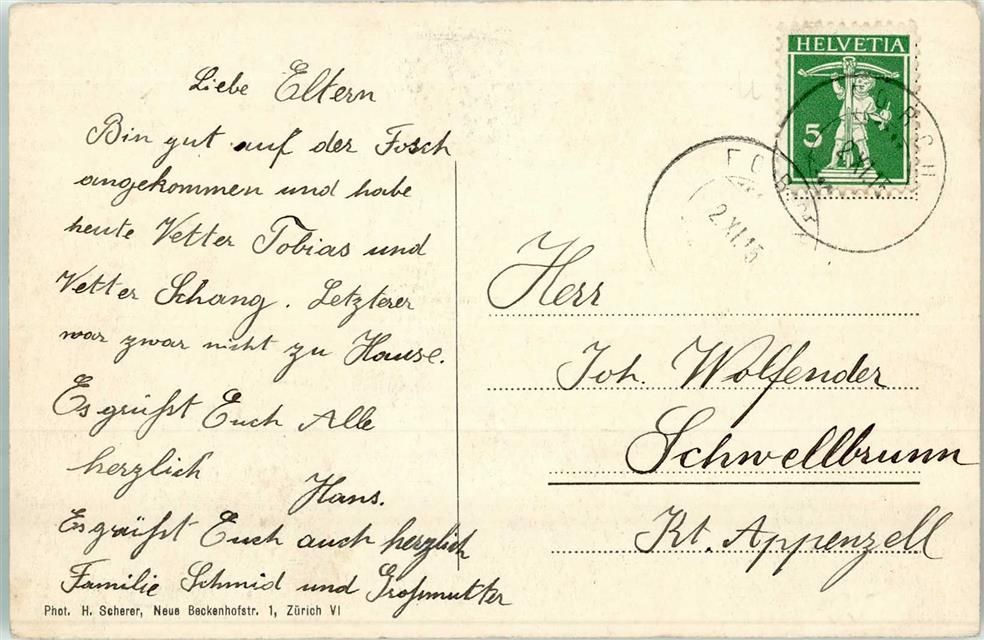 Liebe Eltern
Bin gut auf der Fosch
angekommen und habe
heute Vetter Tobias und
Vetter Schang. Letzterer
war zwar nicht zu Hause.
Es grüßt Euch Alle
herzlich
Hans.
Es grüßt Euch auch herzlich
Familie Schmid und Großmutter
Phot. H. Scherer, Neue Beckenhofstr. 1, Zürich VI
HELVETIA
5
2.XI.15
Herr
Joh. Wolfender
Schwellbrunn
Kt. Appenzell